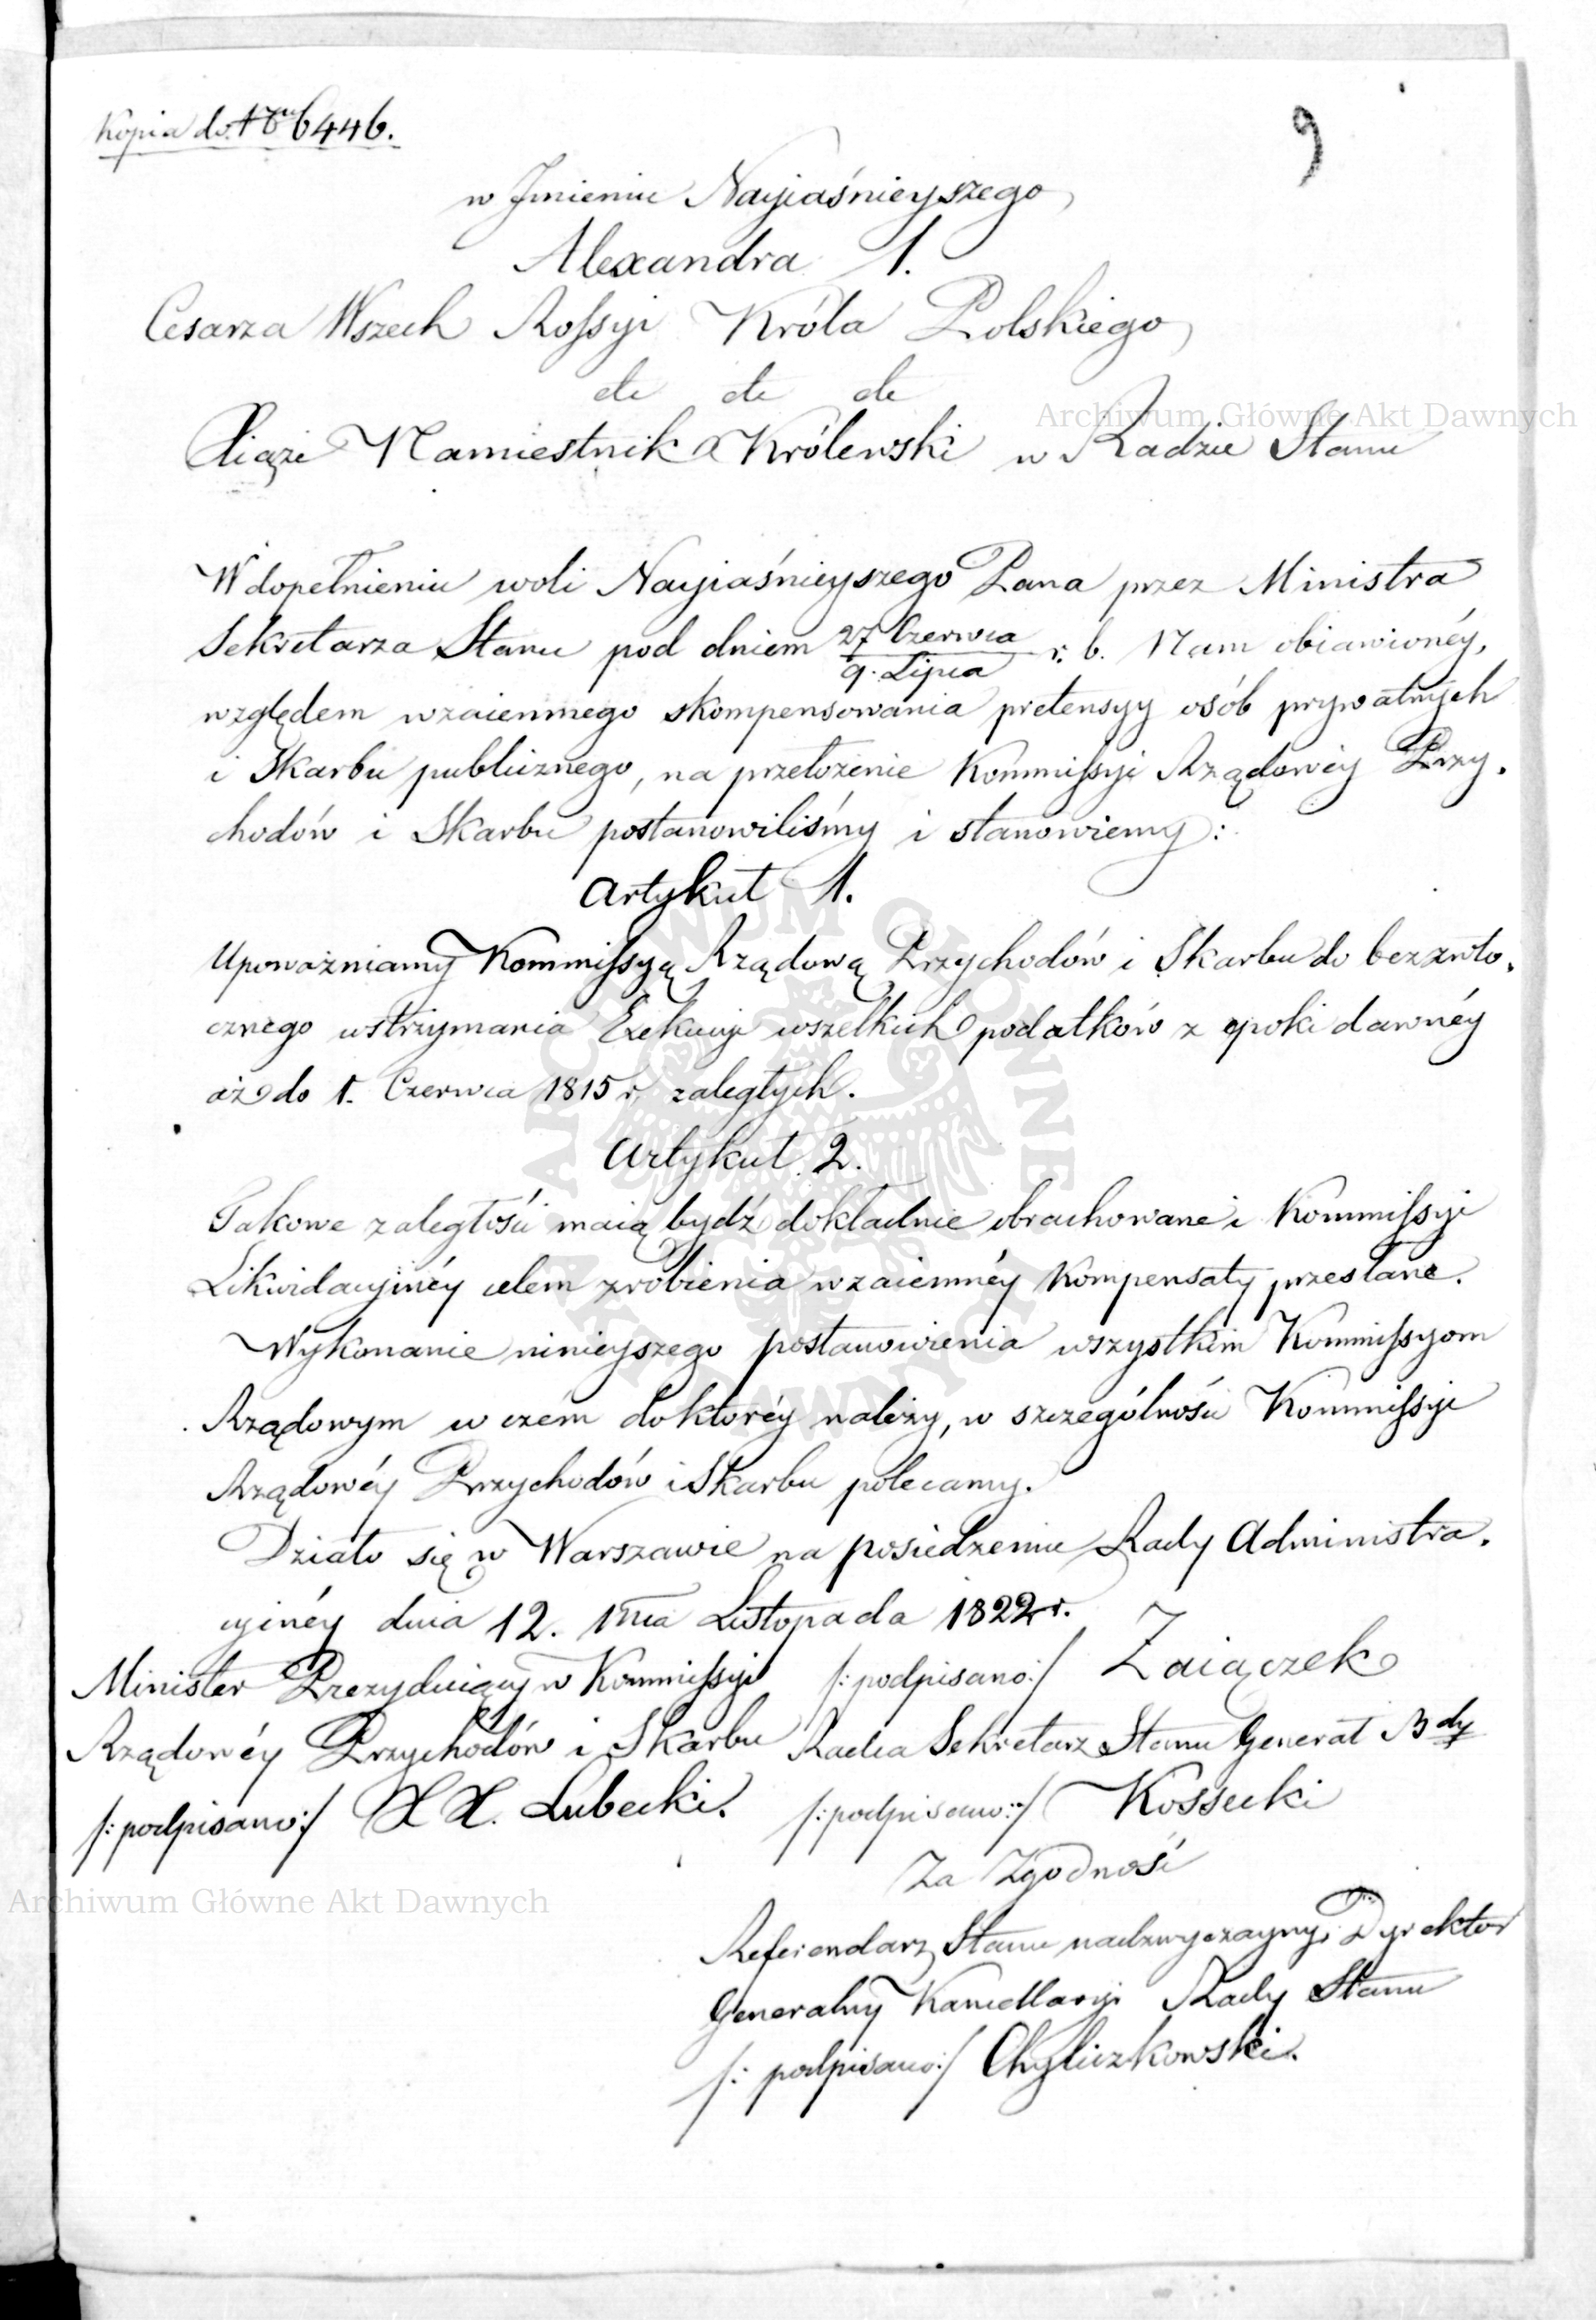 Kopia do Nru 6446.
9
w Jmieniu Nayiaśnieyszego
Alexandra 1.
Cesarza Wszech Rossyi Króla Polskiego
etc etc etc
Archiwum Główne Akt Dawnych
Xiąże Namiestnik Królewski w Radzie Stanu
W dopełnieniu woli Nayiaśnieyszego Pana przez Ministra
Sekretarza Stanu pod dniem 27 Czerwca / 9. Lipca r. b. Nam obiawionéy,
względem wzaiemnego skompensowania pretensyy osób prywatnych
i Skarbu publicznego, na przełożenie Kommissyi Rządowéy Przy-
chodów i Skarbu postanowiliśmy i stanowiemy:
Artykuł 1.
Upoważniamy Kommissyą Rządową Przychodów i Skarbu do bezzwło-
cznego wstrzymania Exekucyi wszelkich podatków z epoki dawnéy
aż do 1. Czerwca 1815 r. zaległych.
Artykuł 2.
Takowe zaległości maią bydź dokładnie obrachowane i Kommissyi
Likwidacyinéy celem zrobienia wzaiemnéy Kompensaty przesłane.
Wykonanie ninieyszego postanowienia wszystkim Kommissyom
Rządowym w czem do któréy należy, w szczególności Kommissyi
Rządowéy Przychodów i Skarbu polecamy.
Działo się w Warszawie na posiedzeniu Rady Administra-
cyinéy dnia 12. mca Listopada 1822 r.
Minister Prezyduiący w Kommissyi
Rządowéy Przychodów i Skarbu
/:podpisano:/ X X. Lubecki.
/:podpisano:/ Zaiączek
Radca Sekretarz Stanu Generał Bdy
/:podpisano:/ Kossecki
Za Zgodność
Archiwum Główne Akt Dawnych
Referendarz Stanu nadzwyczayny, Dyrektor
Generalny Kancellaryi Rady Stanu
/: podpisano:/ Chyliczkowski.
ARCHIWUM GŁÓWNE AKT DAWNYCH